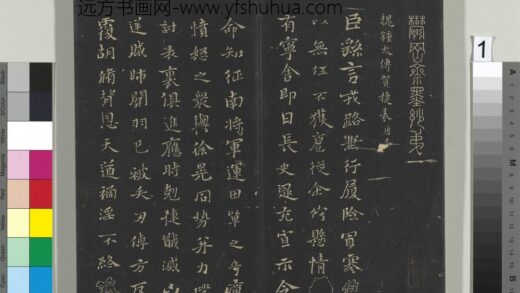 远方书画网-www.yfshuhua.com
1
鬱岡齋墨妙第一
魏鍾太傅賀捷表
臣繇言戎路兼行履險冒寒
以無任不獲扈從企佇懸情
有寧舍即日長史逯充宣示令
命知征南將軍運田單之奇厲
憤怒之衆與徐晃同勢并力撲
討表裏俱進應時剋捷馘滅凶
逆賊帥關羽已被矢刃傅方反
覆胡脩背恩天道禍淫不終
Black
3/Color
White
Magenta
Red
Yellow
Green
Cyan
A
M
B